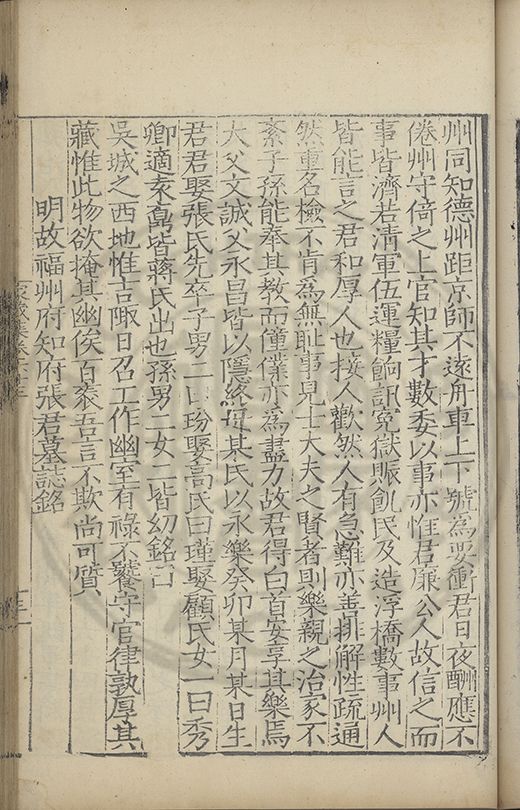 州同知德州距京師不遠舟車上下號為要衝君日夜酬應不
倦州守倚之上官知其才數委以事亦惟君廉公人故信之而
事皆濟若清軍伍運糧餉訊冤獄賑飢民及造浮橋數事州人
皆能言之君和厚人也接人歡然人有急難亦善排解性疏通
然重名檢不肯為無耻事見士大夫之賢者則樂親之治家不
紊子孫能奉其教而僮僕亦為盡力故君得白首安享其樂焉
大父文誠父永昌皆以隱終母某氏以永樂癸卯某月某日生
君君娶張氏先卒子男二曰玢娶高氏曰瑾娶顧氏女一曰秀
卿適袤皆蔣氏出也孫男一女二皆幼銘曰
吳城之西地惟吉陬日召工作幽室有祿不饕守官律孰厚其
藏惟此物欲掩其幽俟百袠吾言不欺尚可質
明故福州府知府張君墓誌銘